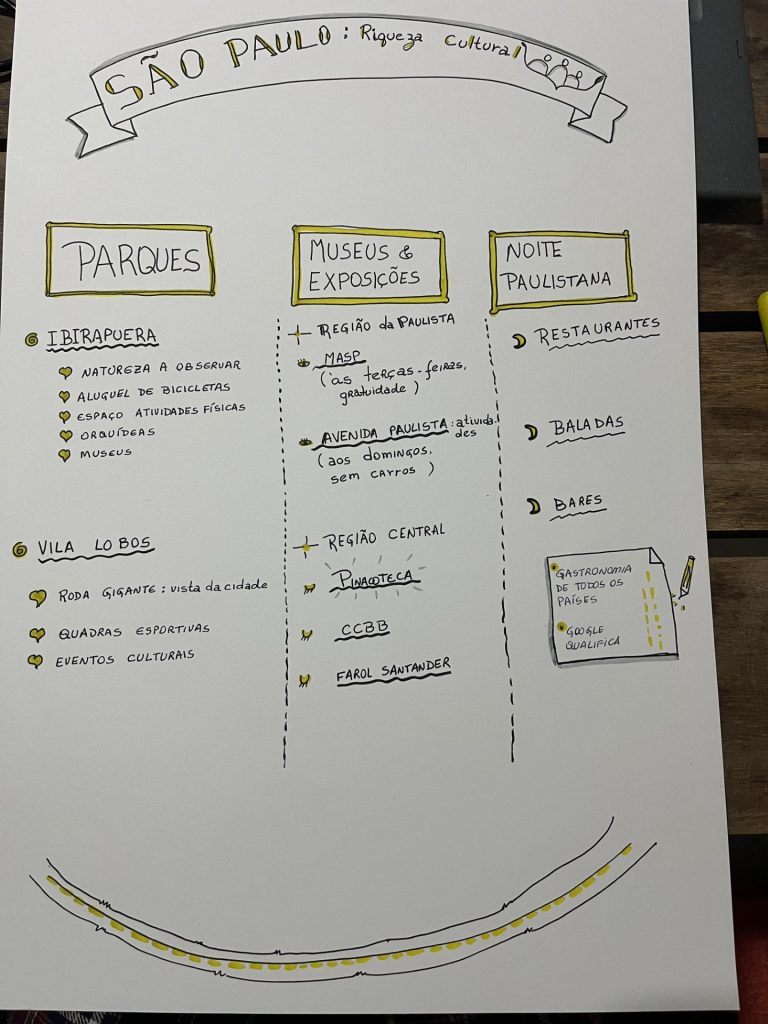 SÃO PAULO: Riqueza Cultural
PARQUES
IBIRAPUERA
NATUREZA A OBSERVAR
ALUGUEL DE BICICLETAS
ESPAÇO ATIVIDADES FÍSICAS
ORQUÍDEAS
MUSEUS
VILA LOBOS
RODA GIGANTE: vista da cidade
QUADRAS ESPORTIVAS
EVENTOS CULTURAIS
MUSEUS &
EXPOSIÇÕES
REGIÃO da PAULISTA
MASP
(às terças-feiras,
gratuidade)
AVENIDA PAULISTA: ativida
des
(aos domingos,
sem carros)
REGIÃO CENTRAL
PINACOTECA
CCBB
FAROL SANTANDER
NOITE
PAULISTANA
RESTAURANTES
BALADAS
BARES
GASTRONOMIA
DE TODOS OS
PAÍSES
GOOGLE
QUALIFICA